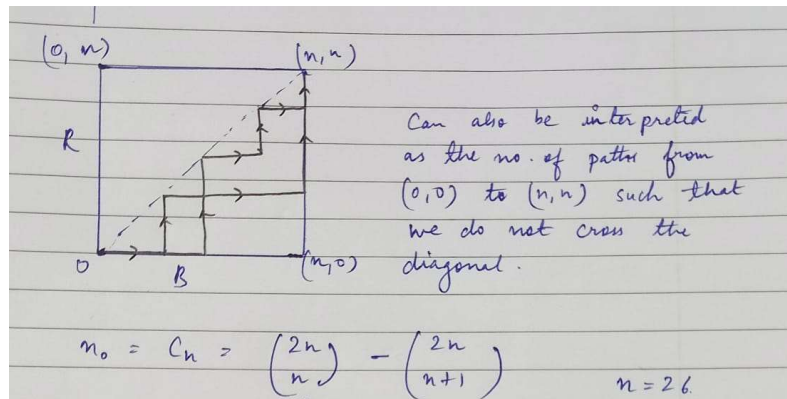 (0, n)
(n, n)
R
Can also be interpreted
as the no. of paths from
(0,0) to (n,n) such that
we do not cross the
diagonal.
O
B
(n,0)
n₀ = Cₙ = (2n n) - (2n n+1)
n = 26